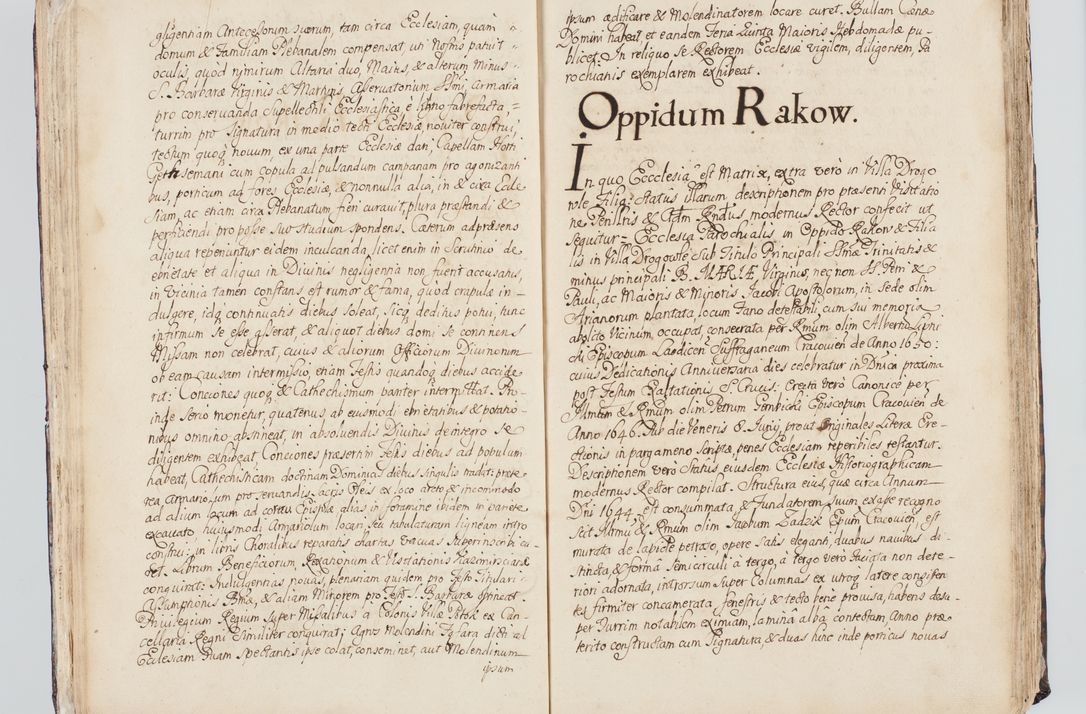 gligentiam Antecessorum suorum, tam circa Ecclesiam, quam
domum & Familiam Plebanalem compensat, uti Nostris patuit
oculis, quod nimirum Altaria duo, Maius, & alterum Minus
S. Barbaræ Virginis & Martyris, Asservatorium SSmi, armaria
pro conservanda Supellectili Ecclesiastica è ligno fabrefacta,
turrim pro Signatura in medio tecti Ecclesiæ, noviter construi,
tectum quoq novum, ex una parte Ecclesiæ dari, Capellam Horti
Gethsemani cum copula ad pulsandum campanam pro agonizanti
bus, porticum ad fores Ecclesiæ, & nonnulla alia, in & circa Eccle
siam, ac etiam circa Plebanatum fieri curavit, plura præstandi &
perficiendi pro posse suo studium spondens. Cæterum ad præsens
aliqua reperiuntur eidem inculcanda, licet enim in Scrutinio de
ebrietate et aliqua in Divinis negligentia non fuerit accusatus,
in vicinia tamen constans est rumor & fama, quòd crapulæ in
dulgere, idq continuatis diebus soleat, sicq deditus potui, tunc
infirmum se esse asserat, & aliquot diebus domi se continens
Missam non celebrat, cuius & aliorum Officiorum Divinorum
ob eam causam intermissio, etiam Festis quandoq diebus accide
rit: Conciones quoq & Cathechismum pariter intermittat. Pro
inde serio monetur, quatenus ab eiusmodi ebrietatibus & potatio
nibus omnino abstineat, in absolvendis Divinis de integro se
diligentem exhibeat, Conciones præsertim Festis diebus ad populum
habeat, Cathechisticam doctrinam Dominicis diebus singulis tradat: præte
rea Armariolum pro servandis sacris Oleis ex loco arcto & incommodo
ad alium locum ad cornu Epistolæ aliàs in foramine ibidem in pariete
excavato huiusmodi Armariolum locari, seu tabulaturam ligneam intro
construi: in libris Choralibus reparatis chartas vacuas superinscribi cu
ret. Librum Beneficiorum, Taxationum & Visitationis
conquirat: Indulgentias novas, plenariam quidem pro Festo Titulari
Assumptionis Bmæ, & aliam Minorem pro Festo S. Barbaræ obtineat.
Privilegium Regium super Missalibus a Colonis Villæ Potok ex Can
cellaria Regni similiter conquirat; Agros Molendini dicti ad
Ecclesiam suam spectantis ipse colat, conseminet, aut Molendinum
ipsum
ipsum ædificare & Molendinatorem locare curet. Bullam Cænæ
Domini habeat, et eandem Feria Quinta Maioris Hebdomadæ pu
blicet. In reliquo se Rectorem Ecclesiæ vigilem, diligentem, Pa
rochianis exemplarem exhibeat.
Oppidum Rakow.
In quo Eccclesia est Matrix, extra verò in Villa Drogo
wle Filia: Status illarum descriptionem pro præsenti Visitatio
ne Perillris & Adm Rndus, modernus Rector confecit ut
sequitur – Ecclesia Parochialis in Oppido Rakow & Filia
lis in Villa Drogowle sub Titulo Principali SSmæ Trinitatis &
minus principali B. MARIÆ Virginis, nec non SS. Petri &
Pauli, ac Maioris & Minoris Jacobi Apostolorum, in sede olim
Arianorum plantata, locum Fano detestabili, cum sui memoria
abolito vicinum, occupat, consecrata per Rmum olim Albertu Lipni
cki Episcopum Laodicen Suffraganeum Cracovien de Anno 1650:
cuius Dedicationis Anniversaria dies celebratur in Dnica proxima
post Festum Exaltationis S. Crucis: Erecta verò Canonicè per
Illmum & Rmum olim Petrum Gembicki Episcopum Cracovien de
Anno 1646. sub die Veneris 8. Junij, prout originales Literæ Ere
ctionis in pargameno scriptæ, penes Ecclesiam reperibiles testantur.
Descriptionem verò Status eiusdem Ecclesiæ Historiographicam
modernus Rector compilat. Structura eius, quæ circa Annum
Dni 1644. est consummata, & Fundatorem suum ex asse recogno
scit Illmum & Rmum olim Jacobum Zadzik Epum Cracovien, est
murata de lapide petroso, opere satis eleganti, duabus navibus di
stincta, & forma Semicirculi à tergo, à tergo vero faciata non dete
riori adornata, introrsum super Columnas ex utroq latere consisten
tes, firmiter concamerata, fenestris & tecto bene provisa, habens desu
per Turrim notabilem eximiam, lamina alba contectam, Anno præ
terito constructam cum Signatura, & duas hinc inde porticus novas